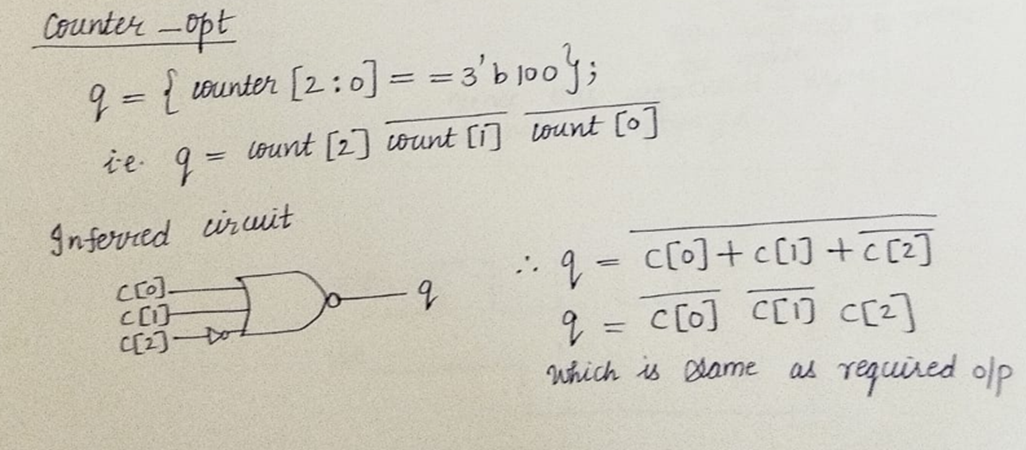 Counter_opt
q = { counter [2:0] == 3'b100};
i.e. q = count [2] c̅o̅u̅n̅t̅ ̅[̅1̅]̅ c̅o̅u̅n̅t̅ ̅[̅0̅]̅
Inferred circuit
c[0]
c[1]
c[2]
q
∴ q = \overline{c[0] + c[1] + \overline{c[2]}}
q = \overline{c[0]} \overline{c[1]} c[2]
which is same as required o/p